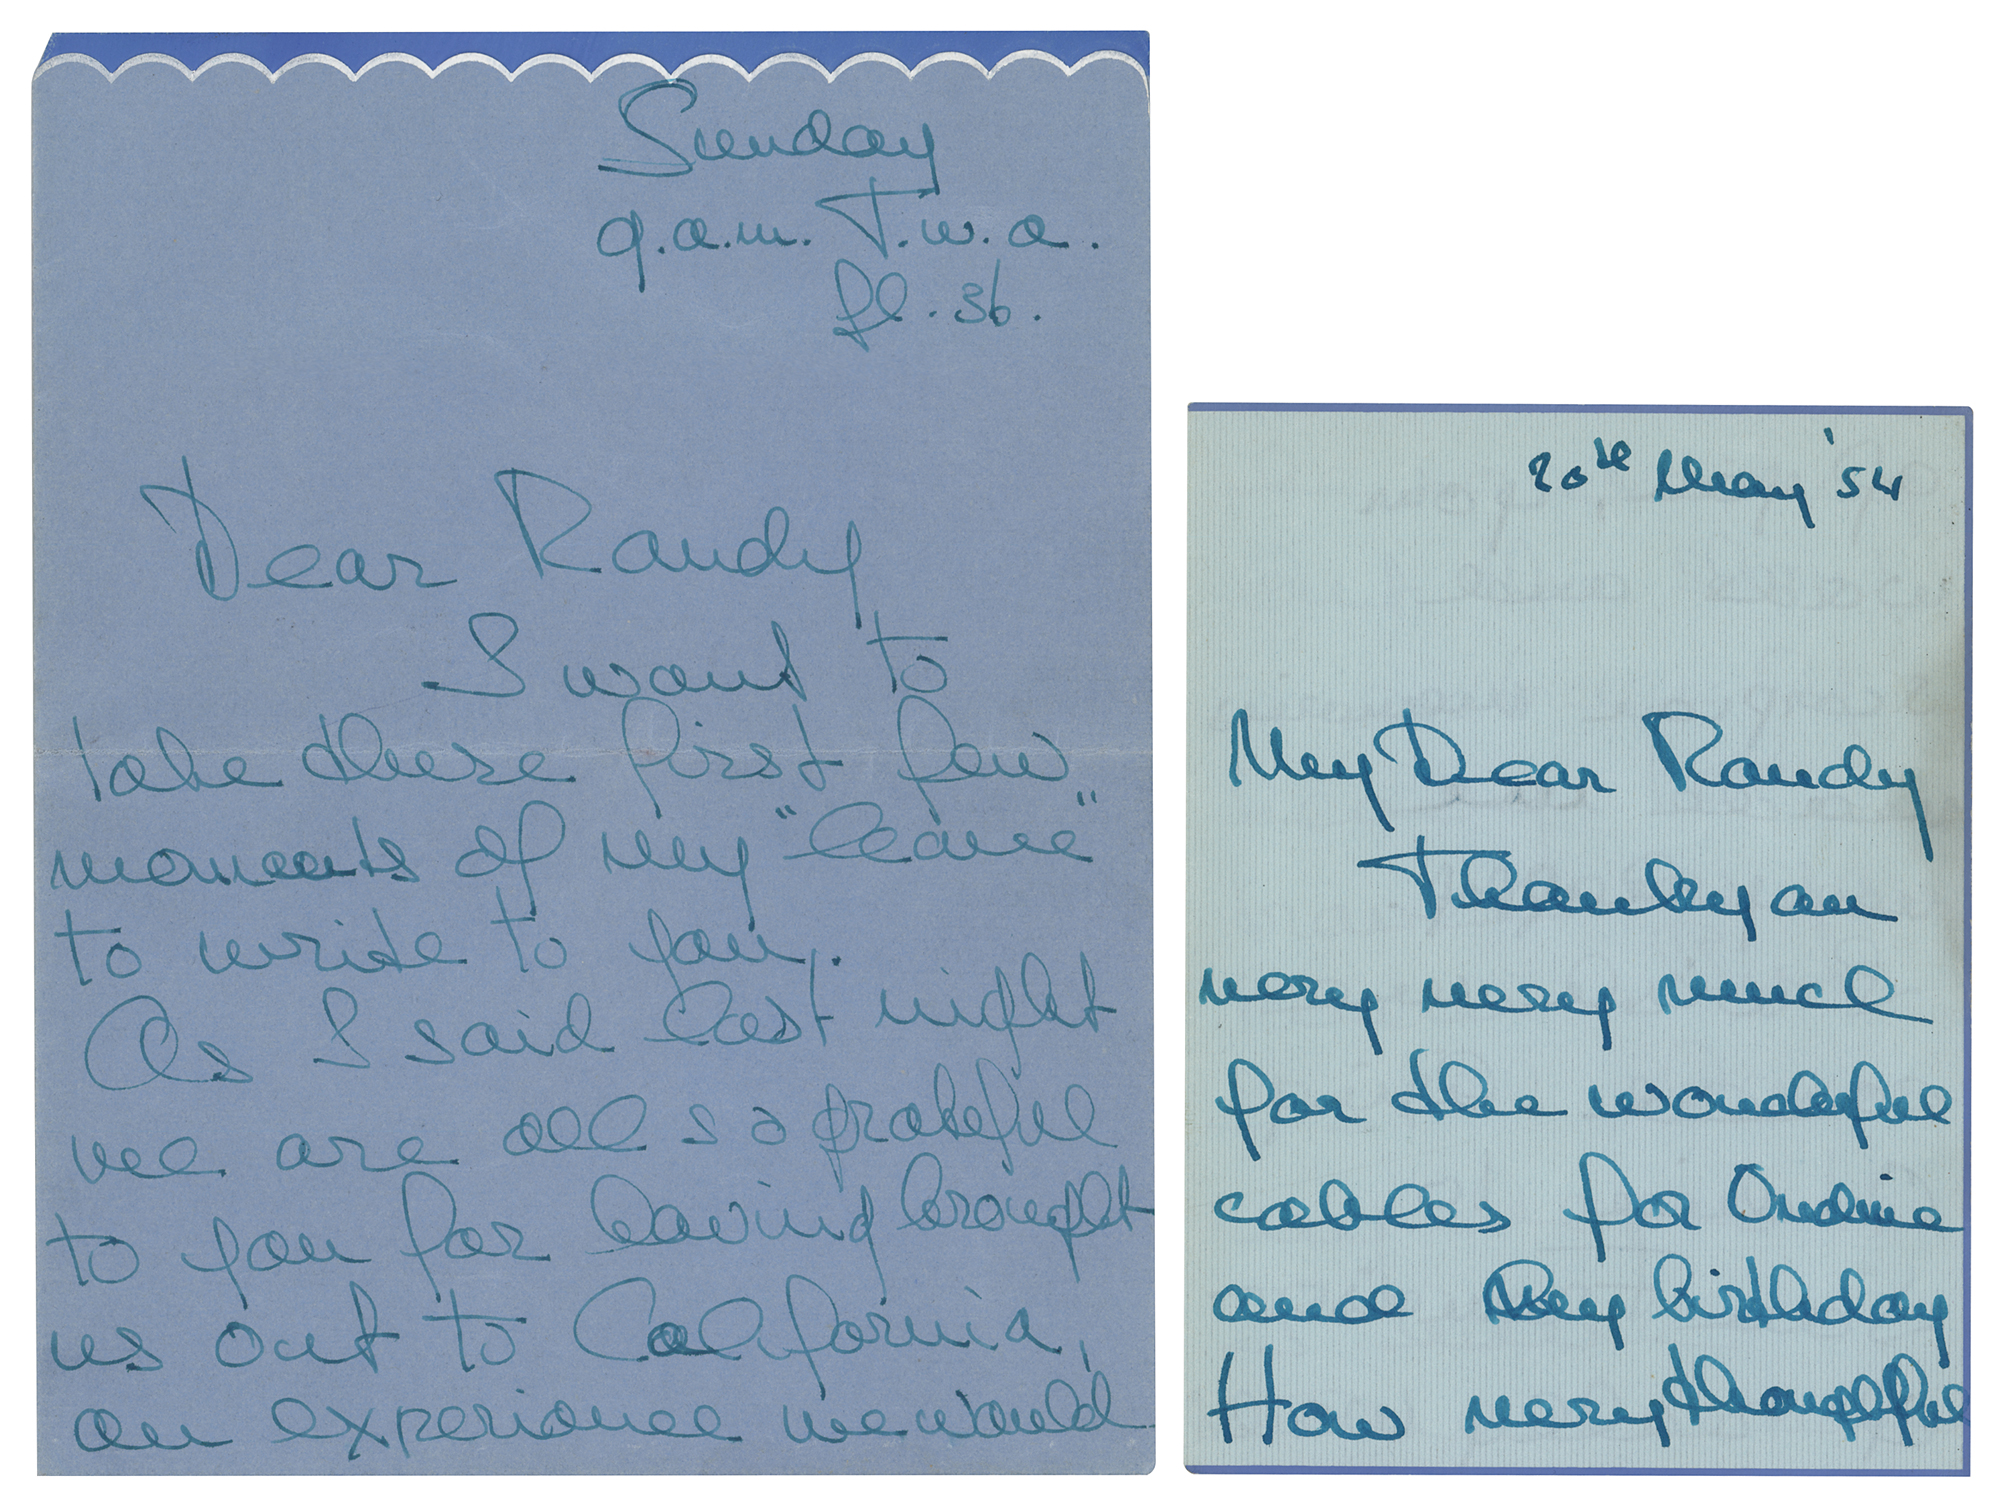 Sunday
9.a.m. T.w.a.
fl. 36.
Dear Randy
I want to
take these first few
moments of my "leave"
to write to you.
As I said last night
we are all so grateful
to you for having brought
us out to California,
an experience we would
20th May '54
My Dear Randy
Thankyou
very very much
for the wonderful
cables for Ondine
and my birthday
How very thoughtful